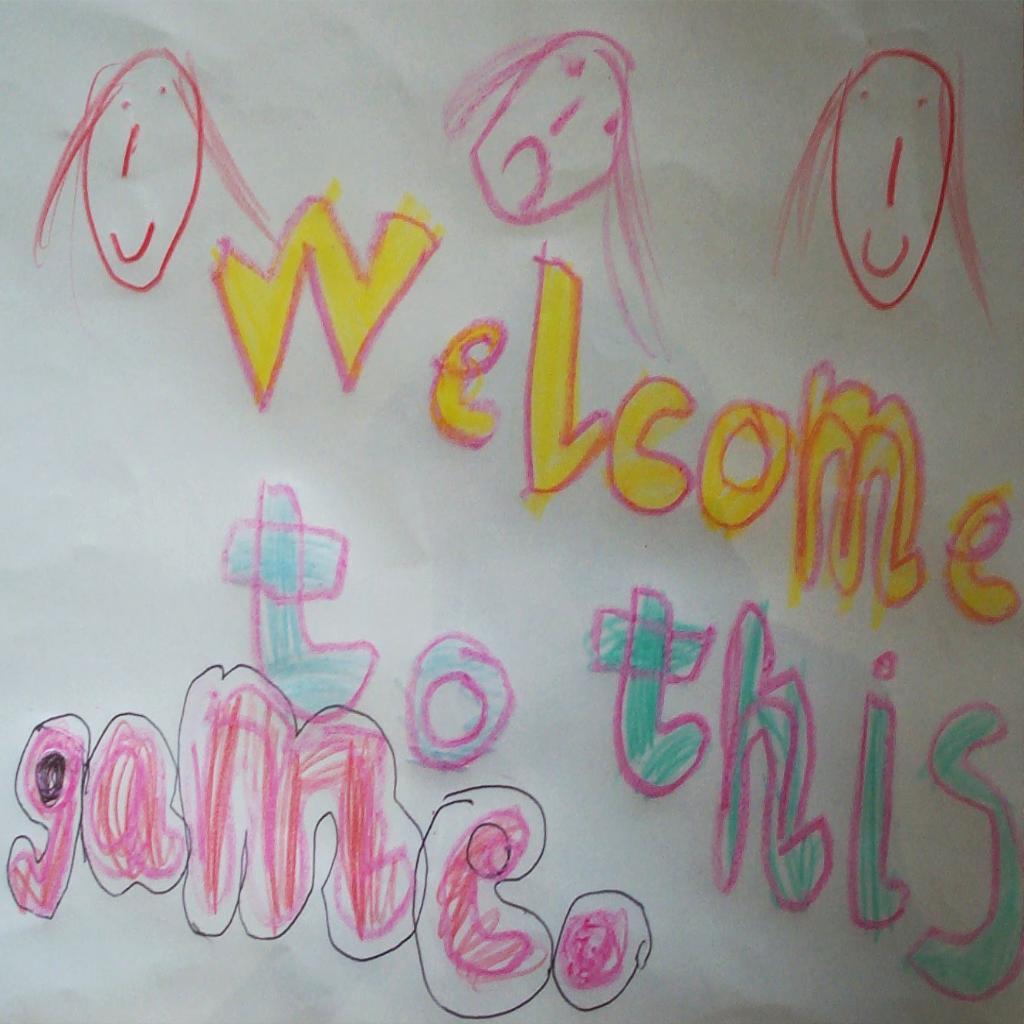 Welcome
to this
game.